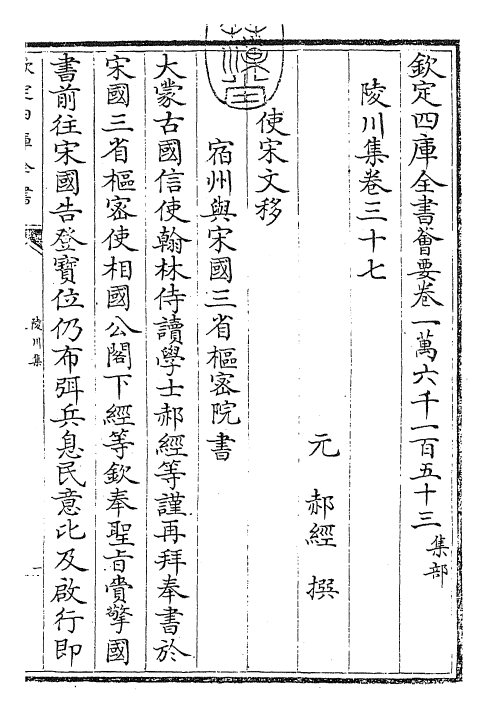 欽定四庫全書薈要卷一萬六千一百五十三 集部
陵川集卷三十七
元 郝經 撰
使宋文移
宿州與宋國三省樞密院書
大蒙古國信使翰林侍讀學士郝經等謹再拜奉書於
宋國三省樞密使相國公閣下經等欽奉聖旨賫擎國
書前往宋國告登寶位仍布弭兵息民意比及啟行即
欽定四庫全書
陵川集